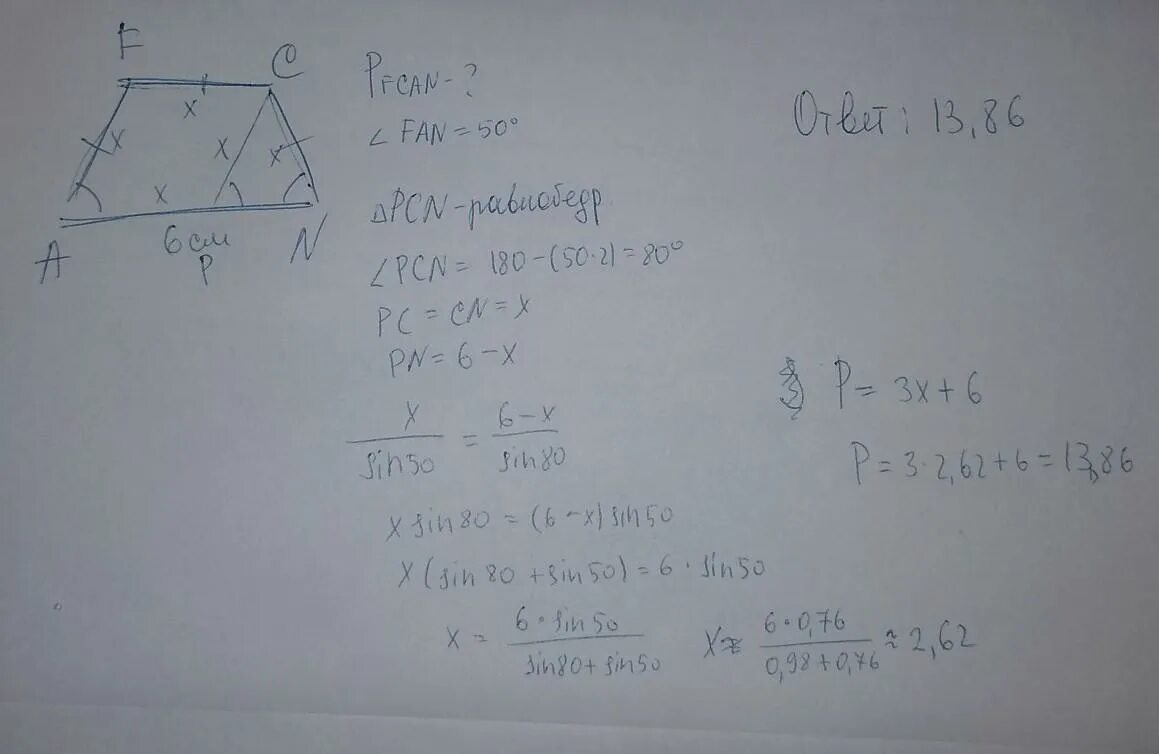 F
C
x
x
x
x
x
6 см
A
P
N
P FCAN - ?
∠ FAN = 50°
△PCN - равнобедр
∠PCN = 180 - (50·2) = 80°
PC = CN = x
PN = 6 - x
x / sin50 = 6 - x / sin80
x sin80 = (6 - x) sin50
x (sin 80 + sin 50) = 6 · sin50
x = 6 · sin50 / sin80 + sin50
x ≈ 6 · 0,76 / 0,98 + 0,76 ≈ 2,62
Ответ: 13,86
P = 3x + 6
P = 3 · 2,62 + 6 = 13,86